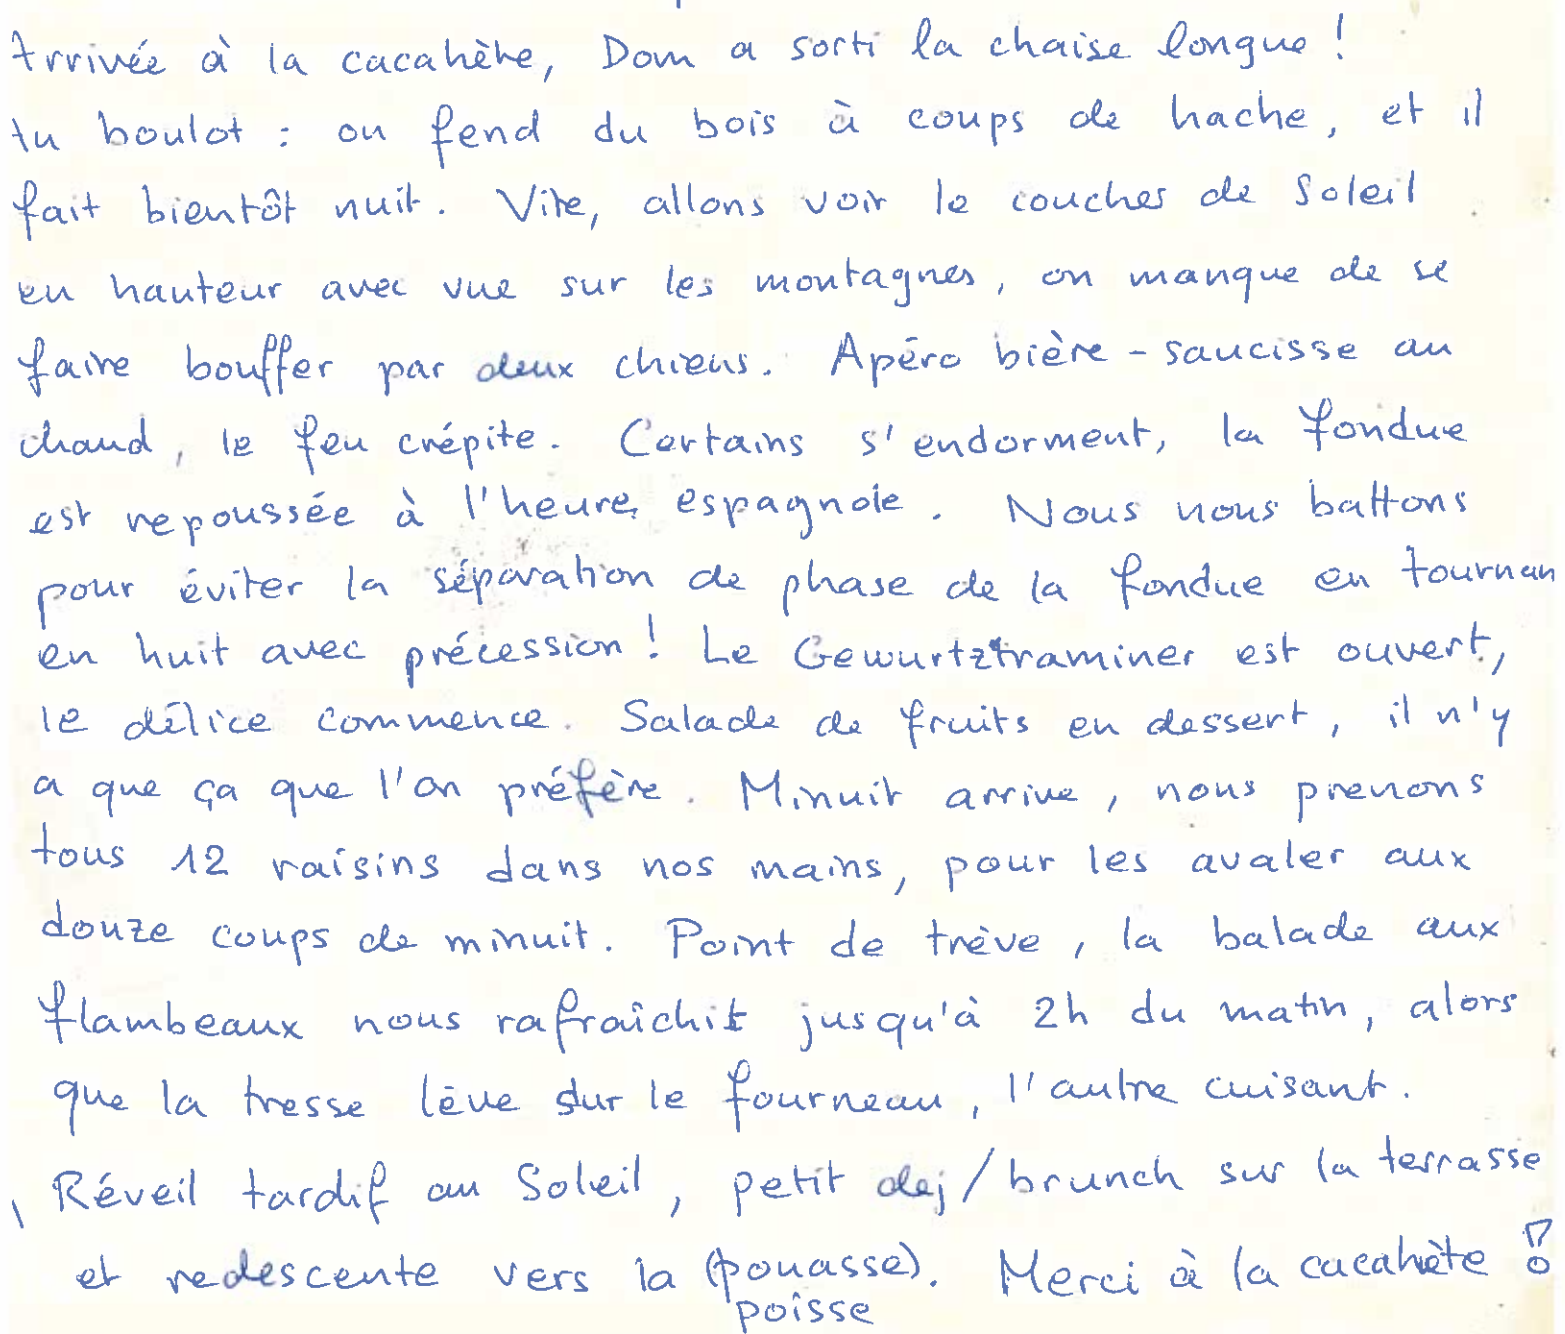 Arrivée à la cacahète, Dom a sorti la chaise longue !
Au boulot : on fend du bois à coups de hache, et il
fait bientôt nuit. Vite, allons voir le coucher de Soleil
en hauteur avec vue sur les montagnes, on manque de se
faire bouffer par deux chiens. Apéro bière - saucisse au
chaud, le feu crépite. Certains s'endorment, la fondue
est repoussée à l'heure espagnole. Nous nous battons
pour éviter la séparation de phase de la fondue en tournan
en huit avec précession ! Le Gewurtztraminer est ouvert,
le délice commence. Salade de fruits en dessert, il n'y
a que ça que l'on préfère. Minuit arrive, nous prenons
tous 12 raisins dans nos mains, pour les avaler aux
douze coups de minuit. Point de trève, la balade aux
flambeaux nous rafraîchit jusqu'à 2h du matin, alors
que la tresse lève sur le fourneau, l'autre cuisant.
Réveil tardif au Soleil, petit dej / brunch sur la terrasse
et redescente vers la (pouasse). Merci à la cacahète !
poisse